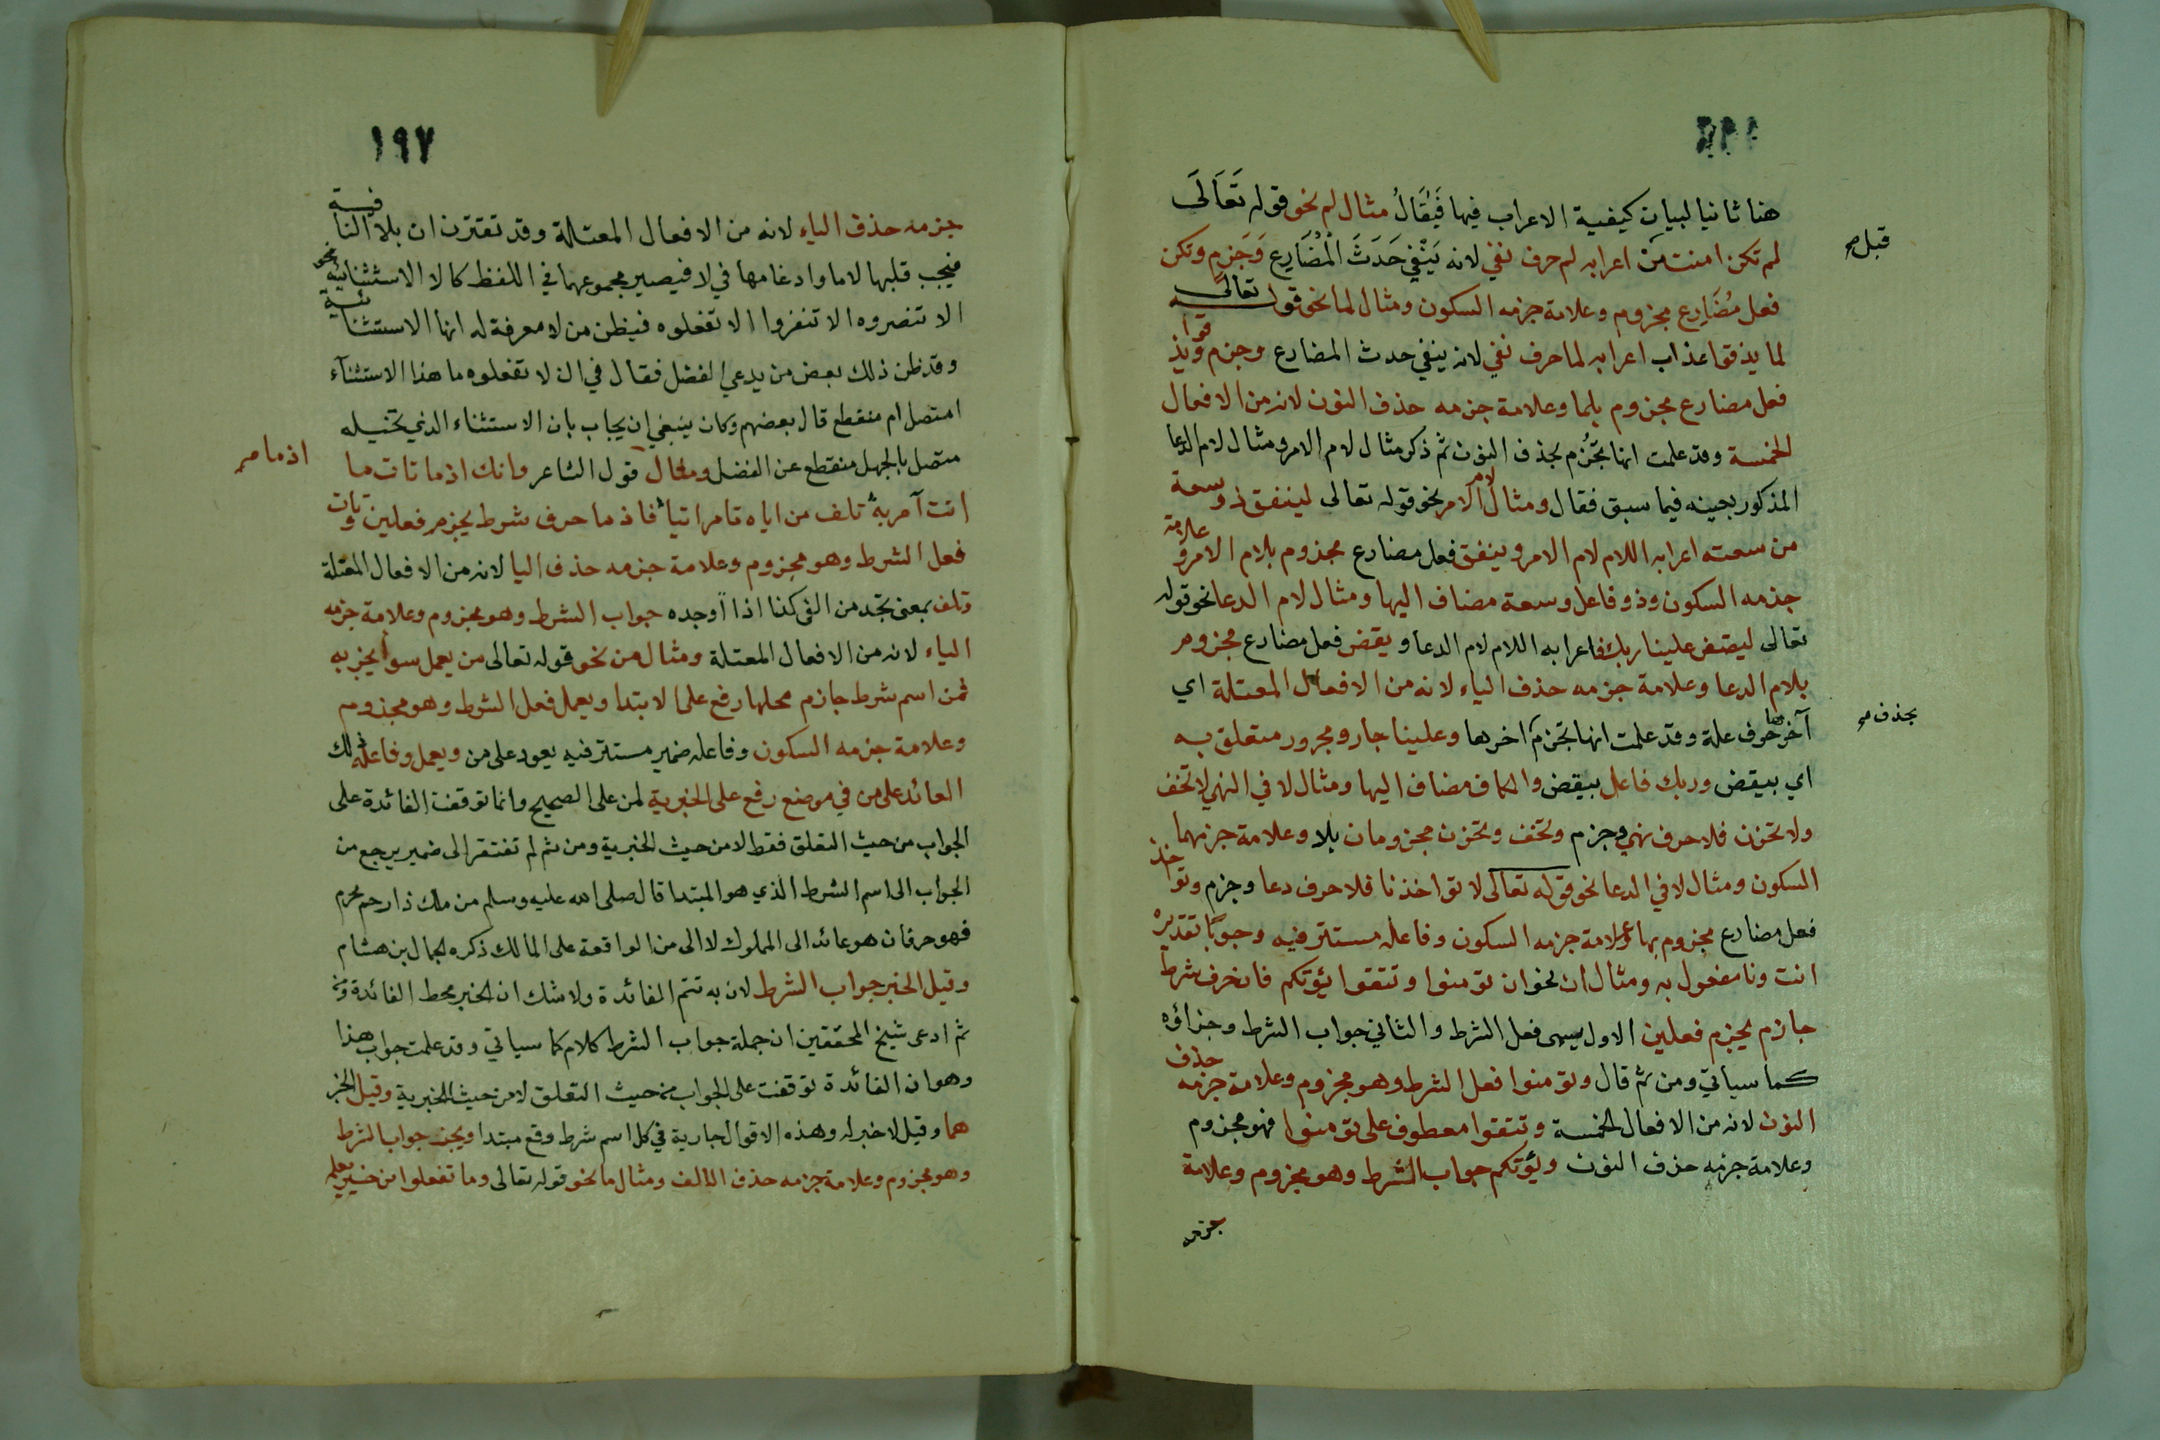 هنا ثانيا لبيان كيفية الاعراب فيها فَيُقَالُ مثال لم نحو قوله تَعَالَى
قبل صح
لم تكن امنت من اعرابه لم حرف نفي لانه يَنْفِي حَدَثَ الْمُضَارِعِ وَجَزمٍ وتكن
فعل مُضَارِع مجزوم وعلامة جزمه السكون ومثال لما نحو قوله تعالى
لما يذقوا عذاب اعرابه لما حرف نفي لانه ينفي حدث المضارع وجزم ويذقوا
فعل مضارع مجزوم بلما وعلامة جزمه حذف النون لانه من الافعال
الخمسة وقد علمت انها تجزم بحذف النون ثم ذكر مثال لام الامر ومثال لام الدعا
المذكور بحينه فيما سبق فقال ومثال لام الامر نحو قوله تعالى لينفق ذو سعة
من سعته اعرابه اللام لام الامر وينفق فعل مضارع مجزوم بلام الامر وعلامة
جزمه السكون وذو فاعل وسعة مضاف اليها ومثال لام الدعا نحو قوله
تعالى ليقض علينا ربك فاعرابه اللام لام الدعا ويقض فعل مضارع مجزوم
بلام الدعا وعلامة جزمه حذف الياء لانه من الافعال المعتلة اي
آخرها حرف علة وقد علمت انها تجزم اخرها وعلينا جار ومجرور متعلق به
بحذف صح
اي بيقض وربك فاعل بيقض والكاف مضاف اليها ومثال لا في النهي لا تخف
ولا تحزن فلا حرف نهي وجزم وتخف وتحزن مجزومان بلا وعلامة جزمهما
السكون ومثال لا في الدعا نحو قوله تعالى لا تواخذنا فلا حرف دعا وجزم وتواخذ
فعل مضارع مجزوم بها وعلامة جزمه السكون وفاعله مستتر فيه وجوبًا تقديره
انت ونا مفعول به ومثال ان نحو ان تومنوا وتتقوا يؤتكم فان حرف شرط
جازم يجزم فعلين الاول يسمى فعل الشرط والثاني جواب الشرط وجزاؤه
كما سياتي ومن ثم قال وتومنوا فعل الشرط وهو مجزوم وعلامة جزمه حذف
النون لانه من الافعال الخمسة وتتقوا معطوف على تومنوا فهو مجزوم
وعلامة جزمه حذف النون ويؤتكم جواب الشرط وهو مجزوم وعلامة
جزمه
١٩٧
جزمه حذف الياء لانه من الافعال المعتلة وقد تقترن ان بلا النافية
فيجب قلبها لاما وادغامها في لا فيصير مجموعهما في اللفظ كالا الاستثنائية نحو
الا تنصروه الا تنفروا الا تفعلوه فيظن من لا معرفة له انها الاستثنائية
وقد ظن ذلك بعض من يدعي الفضل فقال في الا تفعلوه ما هذا الاستثناء
امتصل ام منقطع قال بعضهم وكان ينبغي ان يجاب بان الاستثناء الذي تخيله
متصل بالجهل منقطع عن الفضل ومثال قول الشاعر وانك اذ ما تات ما
اذ ما صح
انت آمر به تلف من اياه تامر اتيا فاذ ما حرف شرط يجزم فعلين وتات
فعل الشرط وهو مجزوم وعلامة جزمه حذف اليا لانه من الافعال المعتلة
وتلف بمعنى تجد من الفى كذا اذا اوجده جواب الشرط وهو مجزوم وعلامة جزمه
الياء لانه من الافعال المعتلة ومثال من نحو قوله تعالى من يعمل سوأ يجز به
فمن اسم شرط جازم محلها رفع على الابتدا ويعمل فعل الشرط وهو مجزوم
وعلامة جزمه السكون وفاعله ضمير مستتر فيه يعود على من ويعمل وفاعله
العائد على من في موضع رفع على الخبرية لمن على الصحيح وانما توقفت الفائدة على
الجواب من حيث التعلق فقط لا من حيث الخبرية ومن ثم لم تفتقر الى ضمير يرجع من
الجواب الى اسم الشرط الذي هو المبتدا قال صلى الله عليه وسلم من ملك ذا رحم محرم
فهو حر فان هو عائد الى المملوك لا الى من الواقعة على المالك ذكره الجمال بن هشام
وقيل الخبر جواب الشرط لان به تتم الفائدة ولا شك ان الخبر محط الفائدة
ثم ادعى شيخ المحققين ان جملة جواب الشرط كلام كما سياتي وقد علمت جواب هذا
وهو ان الفائدة توقفت على الجواب من حيث التعلق لا من حيث الخبرية وقيل الخبر
هما وقيل لا خبر له وهذه الاقوال جارية في كل اسم شرط وقع مبتدا ويجز جواب الشرط
وهو مجزوم وعلامة جزمه حذف الالف ومثال ما نحو قوله تعالى وما تفعلوا من خير يعلمه